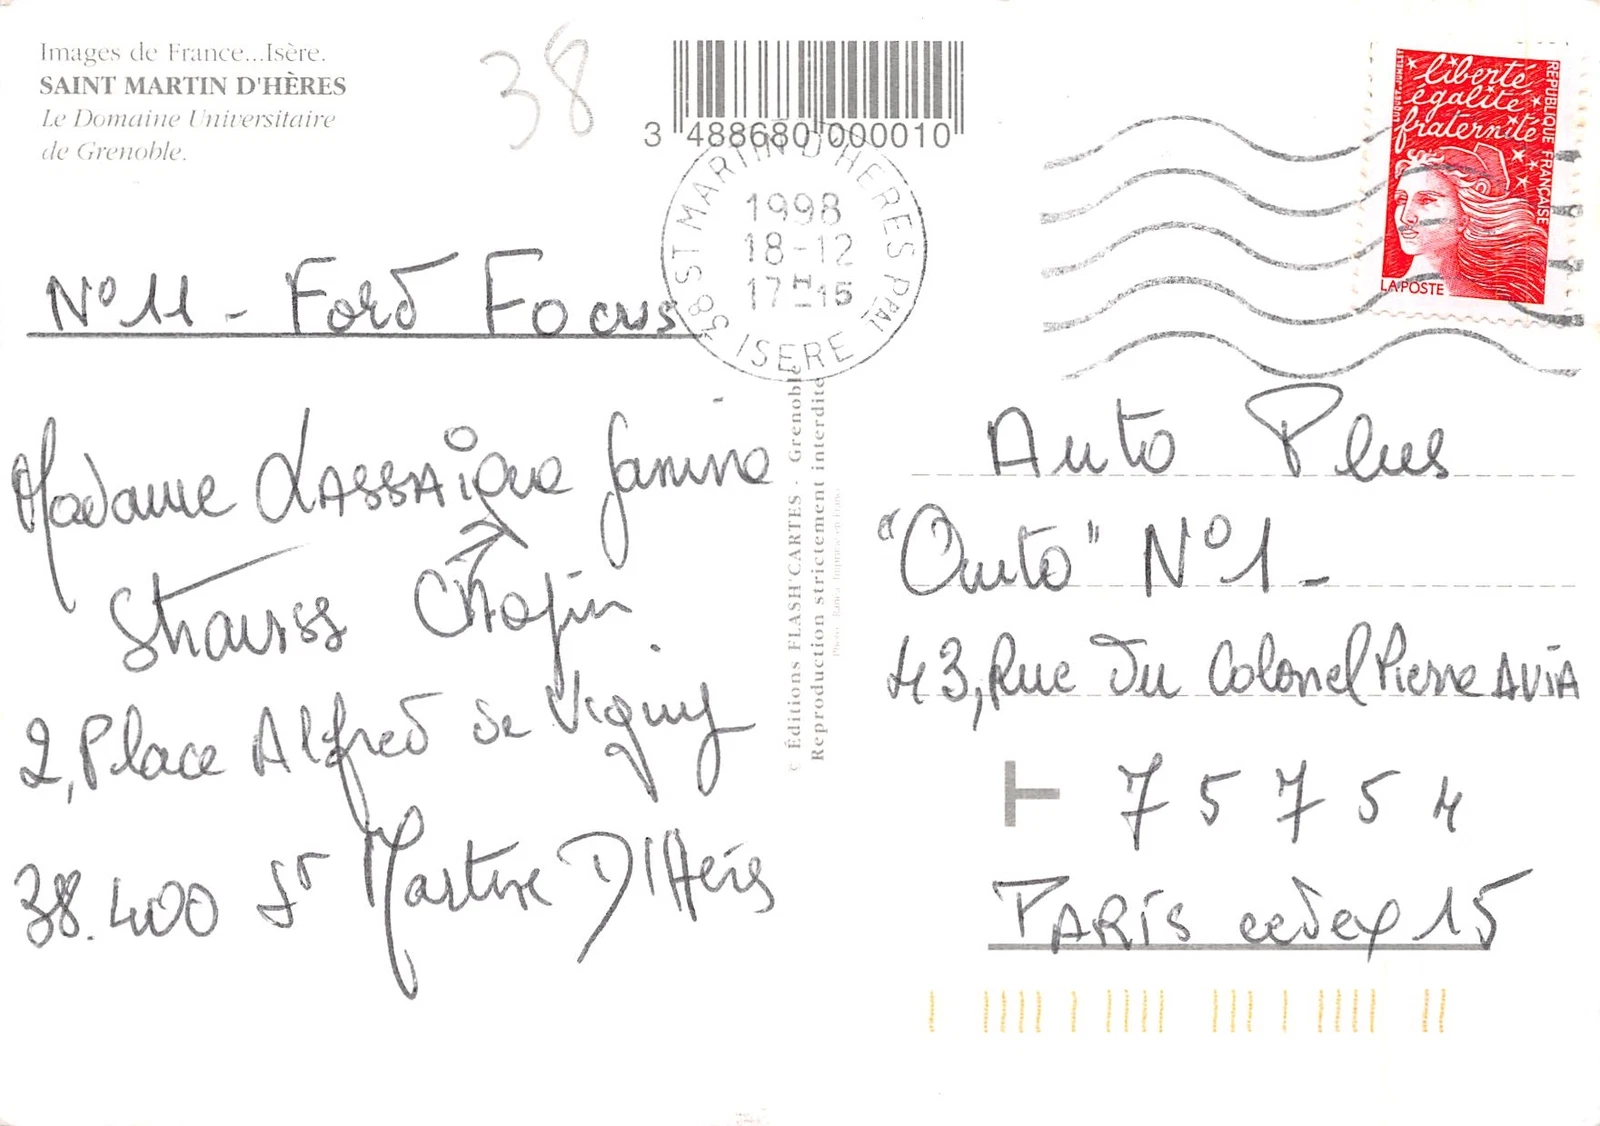 Images de France...Isère.
SAINT MARTIN D'HÈRES
Le Domaine Universitaire
de Grenoble.
38
3 488680 000010
38 ST MARTIN D'HERES PPAL
1998
18-12
17 H 15
ISERE
liberté
égalité
fraternité
REPUBLIQUE FRANÇAISE
LA POSTE
N° 11 - Ford Focus
Madame LASSAigue Janine
Strauss Chopin
2, Place Alfred de Vigny
38.400 St Martin D'Hères
© Éditions FLASH'CARTES - Grenoble
Reproduction strictement interdite
Auto Plus
"Outo" N°1 -
43, Rue Du Colonel Pierre AViA
T 75754
PARiS cedex 15